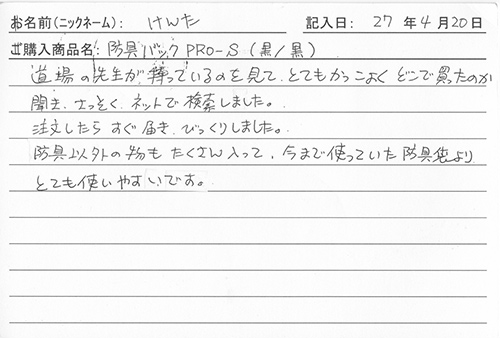 お名前(ニックネーム): けんた 記入日: 27年4月20日
ご購入商品名: 防具バック PRO-S (黒/黒)
道場の先生が持っているのを見て、とてもかっこよくどこで買ったのか
聞き、さっそく、ネットで検索しました。
注文したらすぐ届き、びっくりしました。
防具以外の物もたくさん入って、今まで使っていた防具袋より
とても使いやすいです。